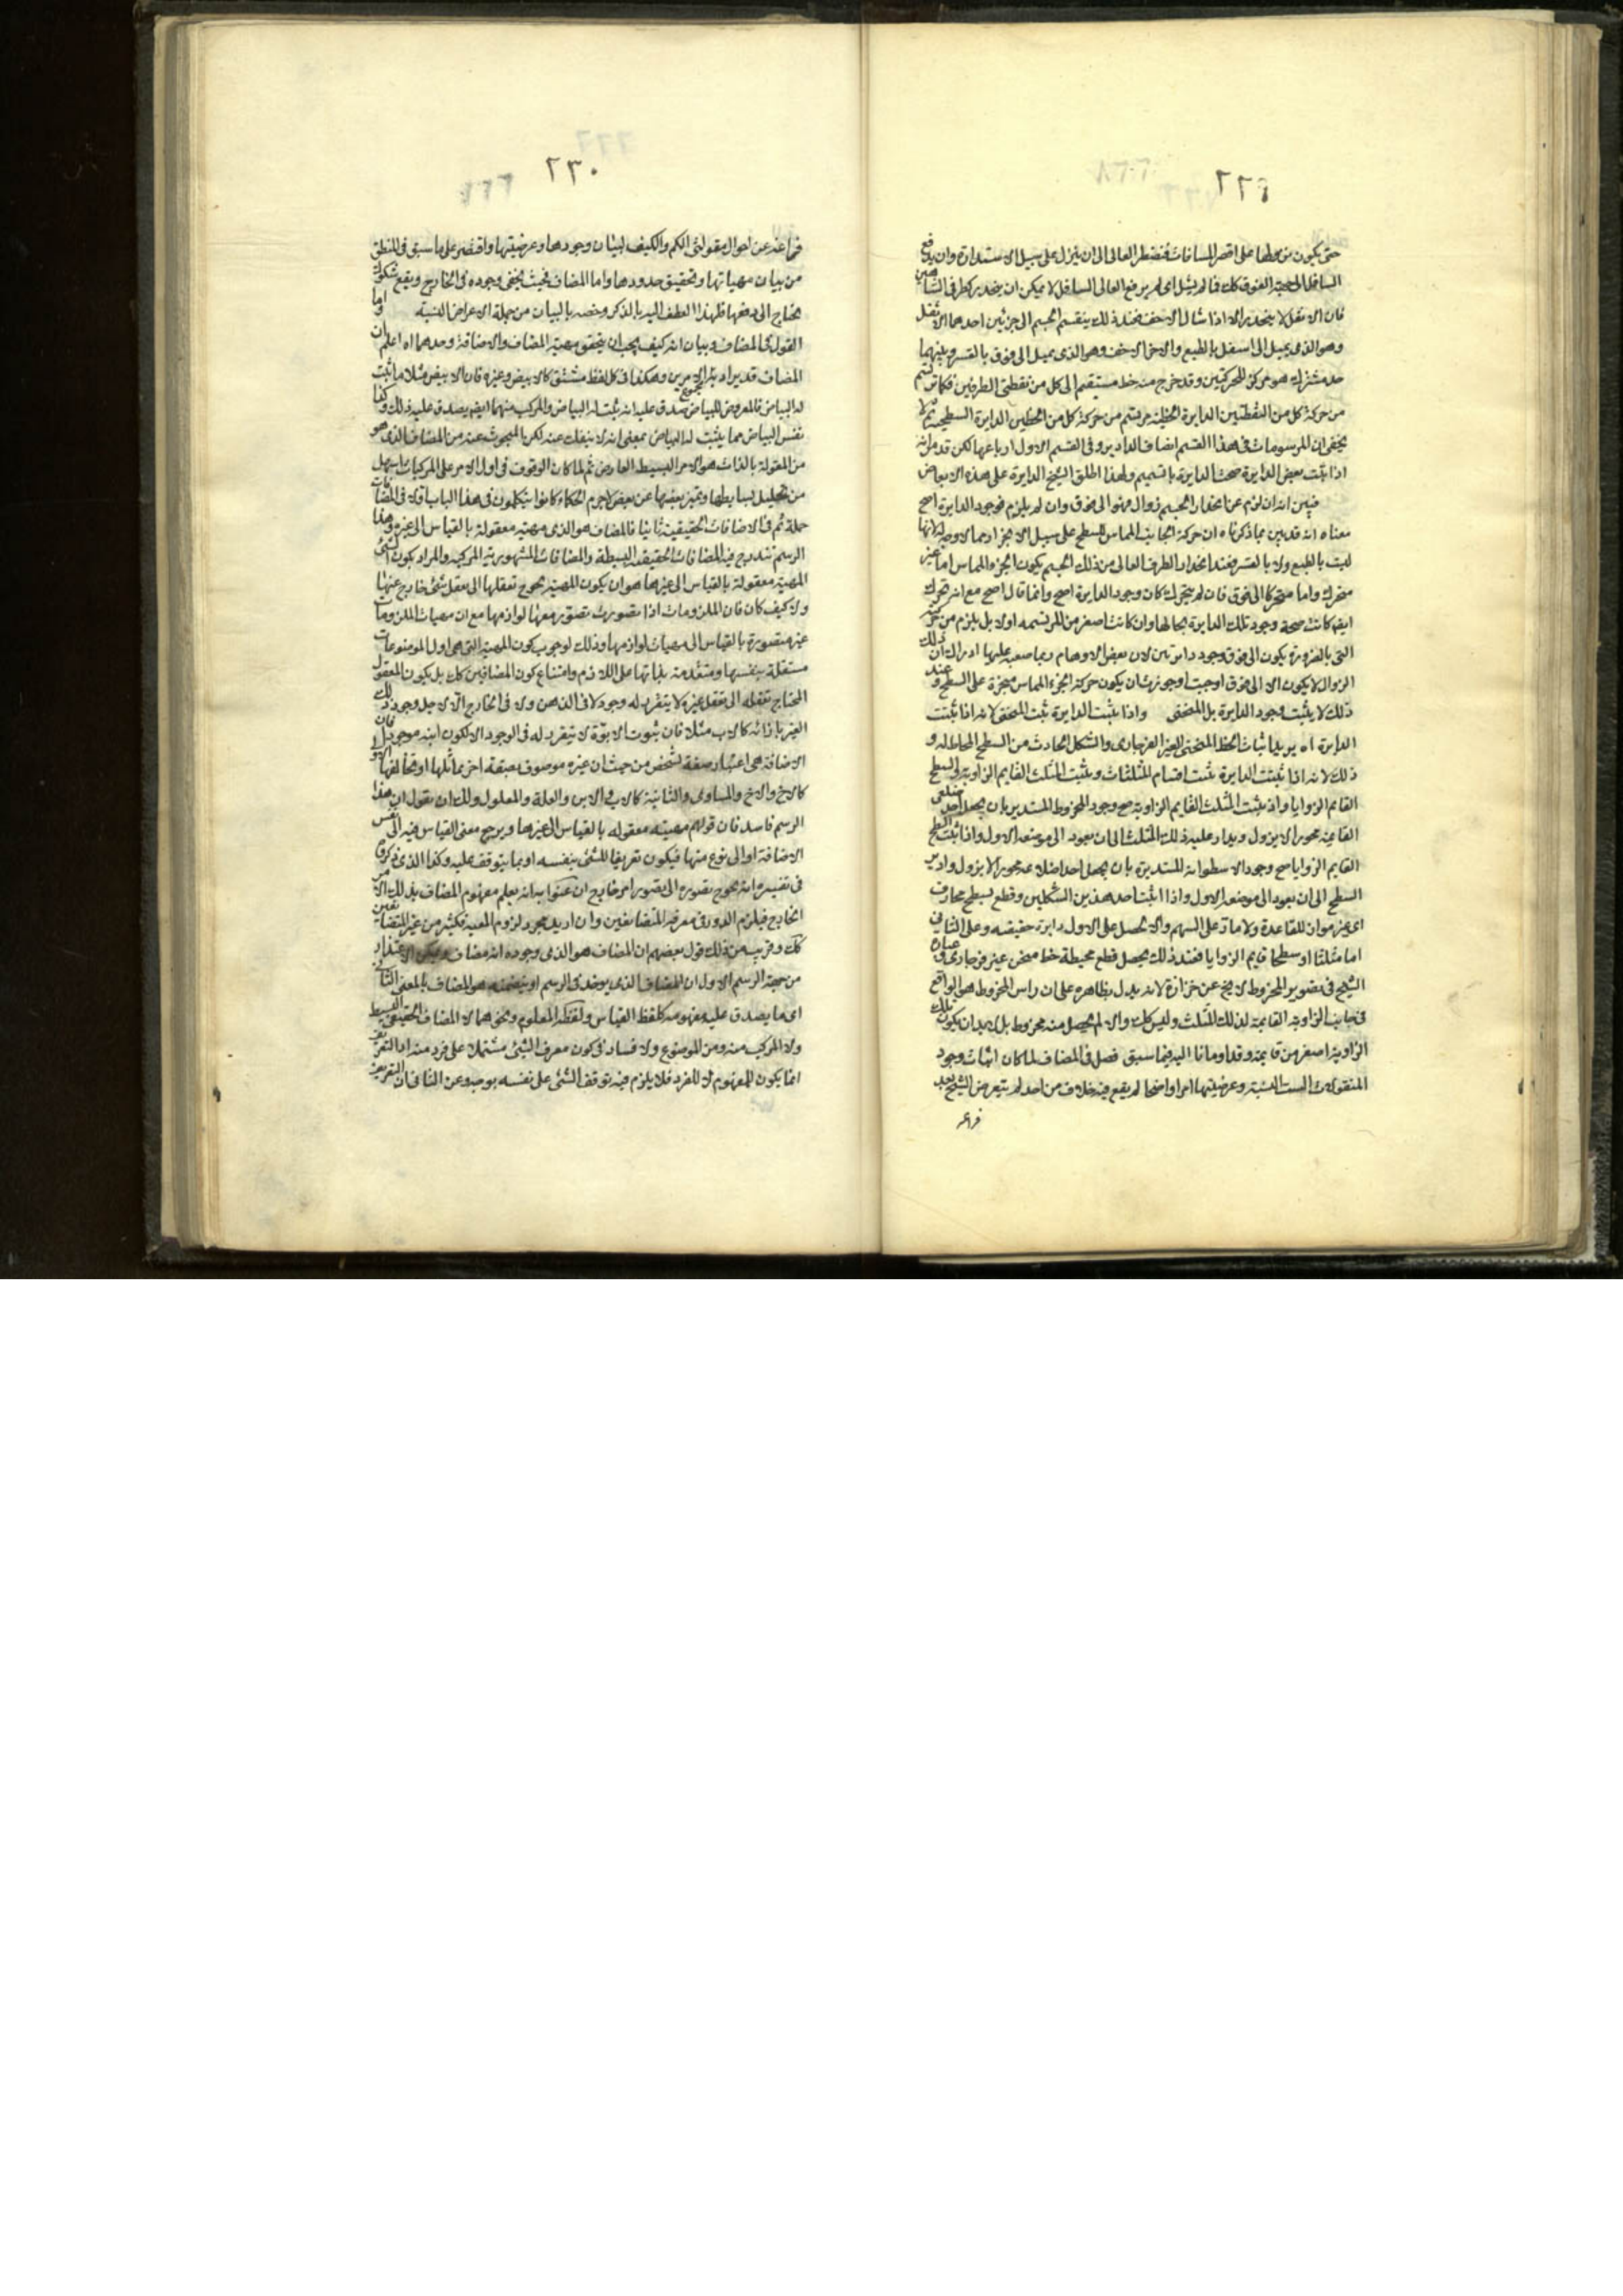 ٢٢٩
حتى يكون من هبوطها على اقصر المسافات فتضطر العالى الى ان ينزل على سبيل الاستدارة وان يدفع
السافل الى جهة الفوق كك فانه لم يشل اى لم يرفع العالى السافل لا يمكن ان ينحدر كطرفى الشاهين
فان الاثقل لا ينحدر الا اذا شال الاخف فعند ذلك ينقسم الجسم الى جزئين احدهما الاثقل
وهو الذى يميل الى اسفل بالطبع والاخر الاخف وهو الذى يميل الى فوق بالقسر وبينهما
حد مشترك هو مركز للحركتين وقد خرج منه خط مستقيم الى كل من نقطتى الطرفين فكما ترتسم
من حركة كل من النقطتين الدايرة الخطية يرتسم من حركة كل من الخطين الدايرة السطحية ثم لا
يخفى ان المرسومات فى هذا القسم انصاف الدواير وفى القسم الاول ارباعها لكن قد مر انه
اذا ثبتت بعض الدايرة صحت الدايرة بالتتميم ولهذا اطلق الشيخ الدايرة على هذه الابعاض
فبين انه ان لزم عن انحدار الجسم زوال فهو الى فوق وان لم يلزم فوجود الدايرة اصح
معناه انه قد بين مما ذكرناه ان حركة الجانب المماس للسطح على سبيل الانجرار مما لا وجه له لانها
ليست بالطبع ولا بالقسر فعند انحدار الطرف العالى من ذلك الجسم يكون الجزء المماس اما غير
متحرك واما متحركا الى فوق فان لم يتحرك كان وجود الدايرة اصح وانما قال اصح مع انه تحرك
ايضا كانت صحة وجود تلك الدايرة بحالها وان كانت اصغر من المرتسمه اولا بل يلزم من حركته
التى بالضرورة يكون الى فوق وجود دايرتين لان بعض الاوهام ربما صعب عليها ادراك ان ذلك
الزوال لا يكون الا الى فوق اوجبت او جوزت ان يكون حركة الجزء المماس منجرة على السطح و عند
ذلك لا يثبت وجود الدايرة بل المنحنى واذا ثبتت الدايرة ثبت المنحنى لانه اذا ثبتت
الدايرة اه يريد اثبات الخط المنحنى الغير الفرجارى والشكل الحادث من السطح المحاط له و
ذلك لانه اذا ثبتت الدايرة ثبتت اقسام المثلثات ويثبت المثلث القايم الزاوية والسطح
القايم الزوايا واذ ثبتت المثلث القايم الزاوية صح وجود المخروط المستدير بان يجعل احد ضلعى
القايمة محورا لا يزول ويدار عليه ذلك المثلث الى ان يعود الى موضعه الاول واذا ثبت السطح
القايم الزوايا صح وجود الاسطوانة المستديرة بان يجعل احد اضلاعه محورا لا يزول وادير
السطح الى ان يعود الى موضعه الاول واذا اثبت احد هذين الشكلين وقطع بسطح محارف
اى غير مواز للقاعدة ولا مار على السهم والا يحصل على الاول دايرة حقيقيه وعلى الثانى
اما مثلثا او سطحا قايم الزوايا فعند ذلك يحصل قطع محيطه خط منحن غير فرجارى و عبارة
الشيخ فى تصوير المخروط لا يخ عن حزازة لانه يدل بظاهره على ان راس المخروط هو الواقع
فى جانب الزاوية القايمة لذلك المثلث وليس كك والا لم يحصل منه مخروط بل لا بد ان يكون تلك
الزاوية اصغر من قايمة وقد اومانا اليه فيما سبق فصل فى المضاف لما كان اثبات وجود
المقولات الست النسبية وعرضيتها امرا واضحا لم يقع فيه خلاف من احد لم يتعرض الشيخ بعد
فراغه
٢٣٠
فراغه عن احوال مقولتى الكم والكيف لبيان وجودها وعرضيتها واقتصر على ما سبق فى المنطق
من بيان مهياتها وتحقيق حدودها واما المضاف فحيث يخفى وجوده فى الخارج ويقع شكوك
يحتاج الى دفعها فلهذا العطف اليه بالذكر وخصه بالبيان من جملة الاعراض النسبية واما
القول فى المضاف وبيان انه كيف يجب ان يتحقق مهية المضاف والاضافة وحدهما اه اعلم ان
المضاف قد يراد به الامرين وهكذا فى كل لفظ مشتق كالابيض وغيره فان الابيض مثلا ما ثبت
له البياض فالمعروض للبياض صدق عليه انه يثبت له البياض والمركب منهما ايضا يصدق عليه ذلك وكذا
نفس البياض مما يثبت له البياض بمعنى انه لا ينفك عنه لكن المبحوث عنه من المضاف الذى هو
من المقولة بالذات هو الامر البسيط العارض ثم لما كان الوقوف فى اول الامر على المركبات اسهل
من تحليل بسايطها وتميز بعضها عن بعض لا جرم الحكماء كانوا يتكلمون فى هذا الباب اولا فى المضافات
جملة ثم فى الاضافات الحقيقية ثانيا فالمضاف هو الذى مهيته معقولة بالقياس الى غيره وهذا
الرسم تندرج فيه المضافات الحقيقية البسيطة والمضافات المشهورية المركبه والمراد بكون الشئ
المهية معقولة بالقياس الى غيرها هو ان يكون المهية يحوج تعقلها الى تعقل شئ خارج عنها
ولا كيف كان فان الملزومات اذا تصورت تصور معها لوازمها مع ان مهيات الملزومات
غير متصورة بالقياس الى مهيات لوازمها وذلك لوجوب كون المهية التى هى اول الموضوعات
مستقلة بنفسها ومتقدمة بذاتها على اللازم وامتناع كون المضافين كك بل يكون المعقول
المحتاج تعقله الى تعقل غيره لا يتقرر له وجود لا فى الذهن ولا فى الخارج الا لاجل وجود ذلك
الغير بازائه كالاب مثلا فان ثبوت الابوة لا يتقرر له فى الوجود الا لكون ابنه موجودا فان
الاضافة هى اعتبار صفة لشخص من حيث ان غيره موصوف بصفة اخرى تماثلها او تخالفها الاول
كالاخ والاخ والمساوى والثانية كالاب والابن والعلة والمعلول ولك ان تقول ان هذا
الرسم فاسد فان قولهم مهيته معقوله بالقياس الى غيرها ويرجع معنى القياس فيه الى نفس
الاضافة او الى نوع منها فيكون تعريفا للشئ بنفسه او بما يتوقف عليه وكذا الذى ذكروه
فى تفسيره انه يحوج تصوره الى تصور امر خارج ان عنوا به انه يعلم مفهوم المضاف بذلك الامر
الخارج فيلزم الدور فى معرفة المتضايفين وان اريد مجرد لزوم المعية فكثير من غير المتضايفين
كك وقريب من ذلك قول بعضهم ان المضاف هو الذى وجوده انه مضاف ويمكن الاعتذار
من جهة الرسم الاول ان المضاف الذى يوخذ فى الرسم او يتضمنه هو المضاف بالمعنى الثانى
اى ما يصدق عليه مفهومه كلفظ القياس ولفظة المعلوم ونحوهما لا المضاف الحقيقى البسيط
ولا المركب منه ومن الموضوع ولا فساد فى كون معرف الشئ مشتملا على فرد منه اذ التعريف
انما يكون للمفهوم لا للفرد فلا يلزم فيه توقف الشئ على نفسه بوجه وعن الثانى ان التعريف